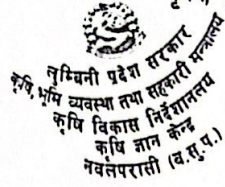 लुम्बिनी प्रदेश सरकार
कृषि, भूमि व्यवस्था तथा सहकारी मन्त्रालय
कृषि विकास निर्देशनालय
कृषि ज्ञान केन्द्र
नवलपरासी (ब.सु.प.)